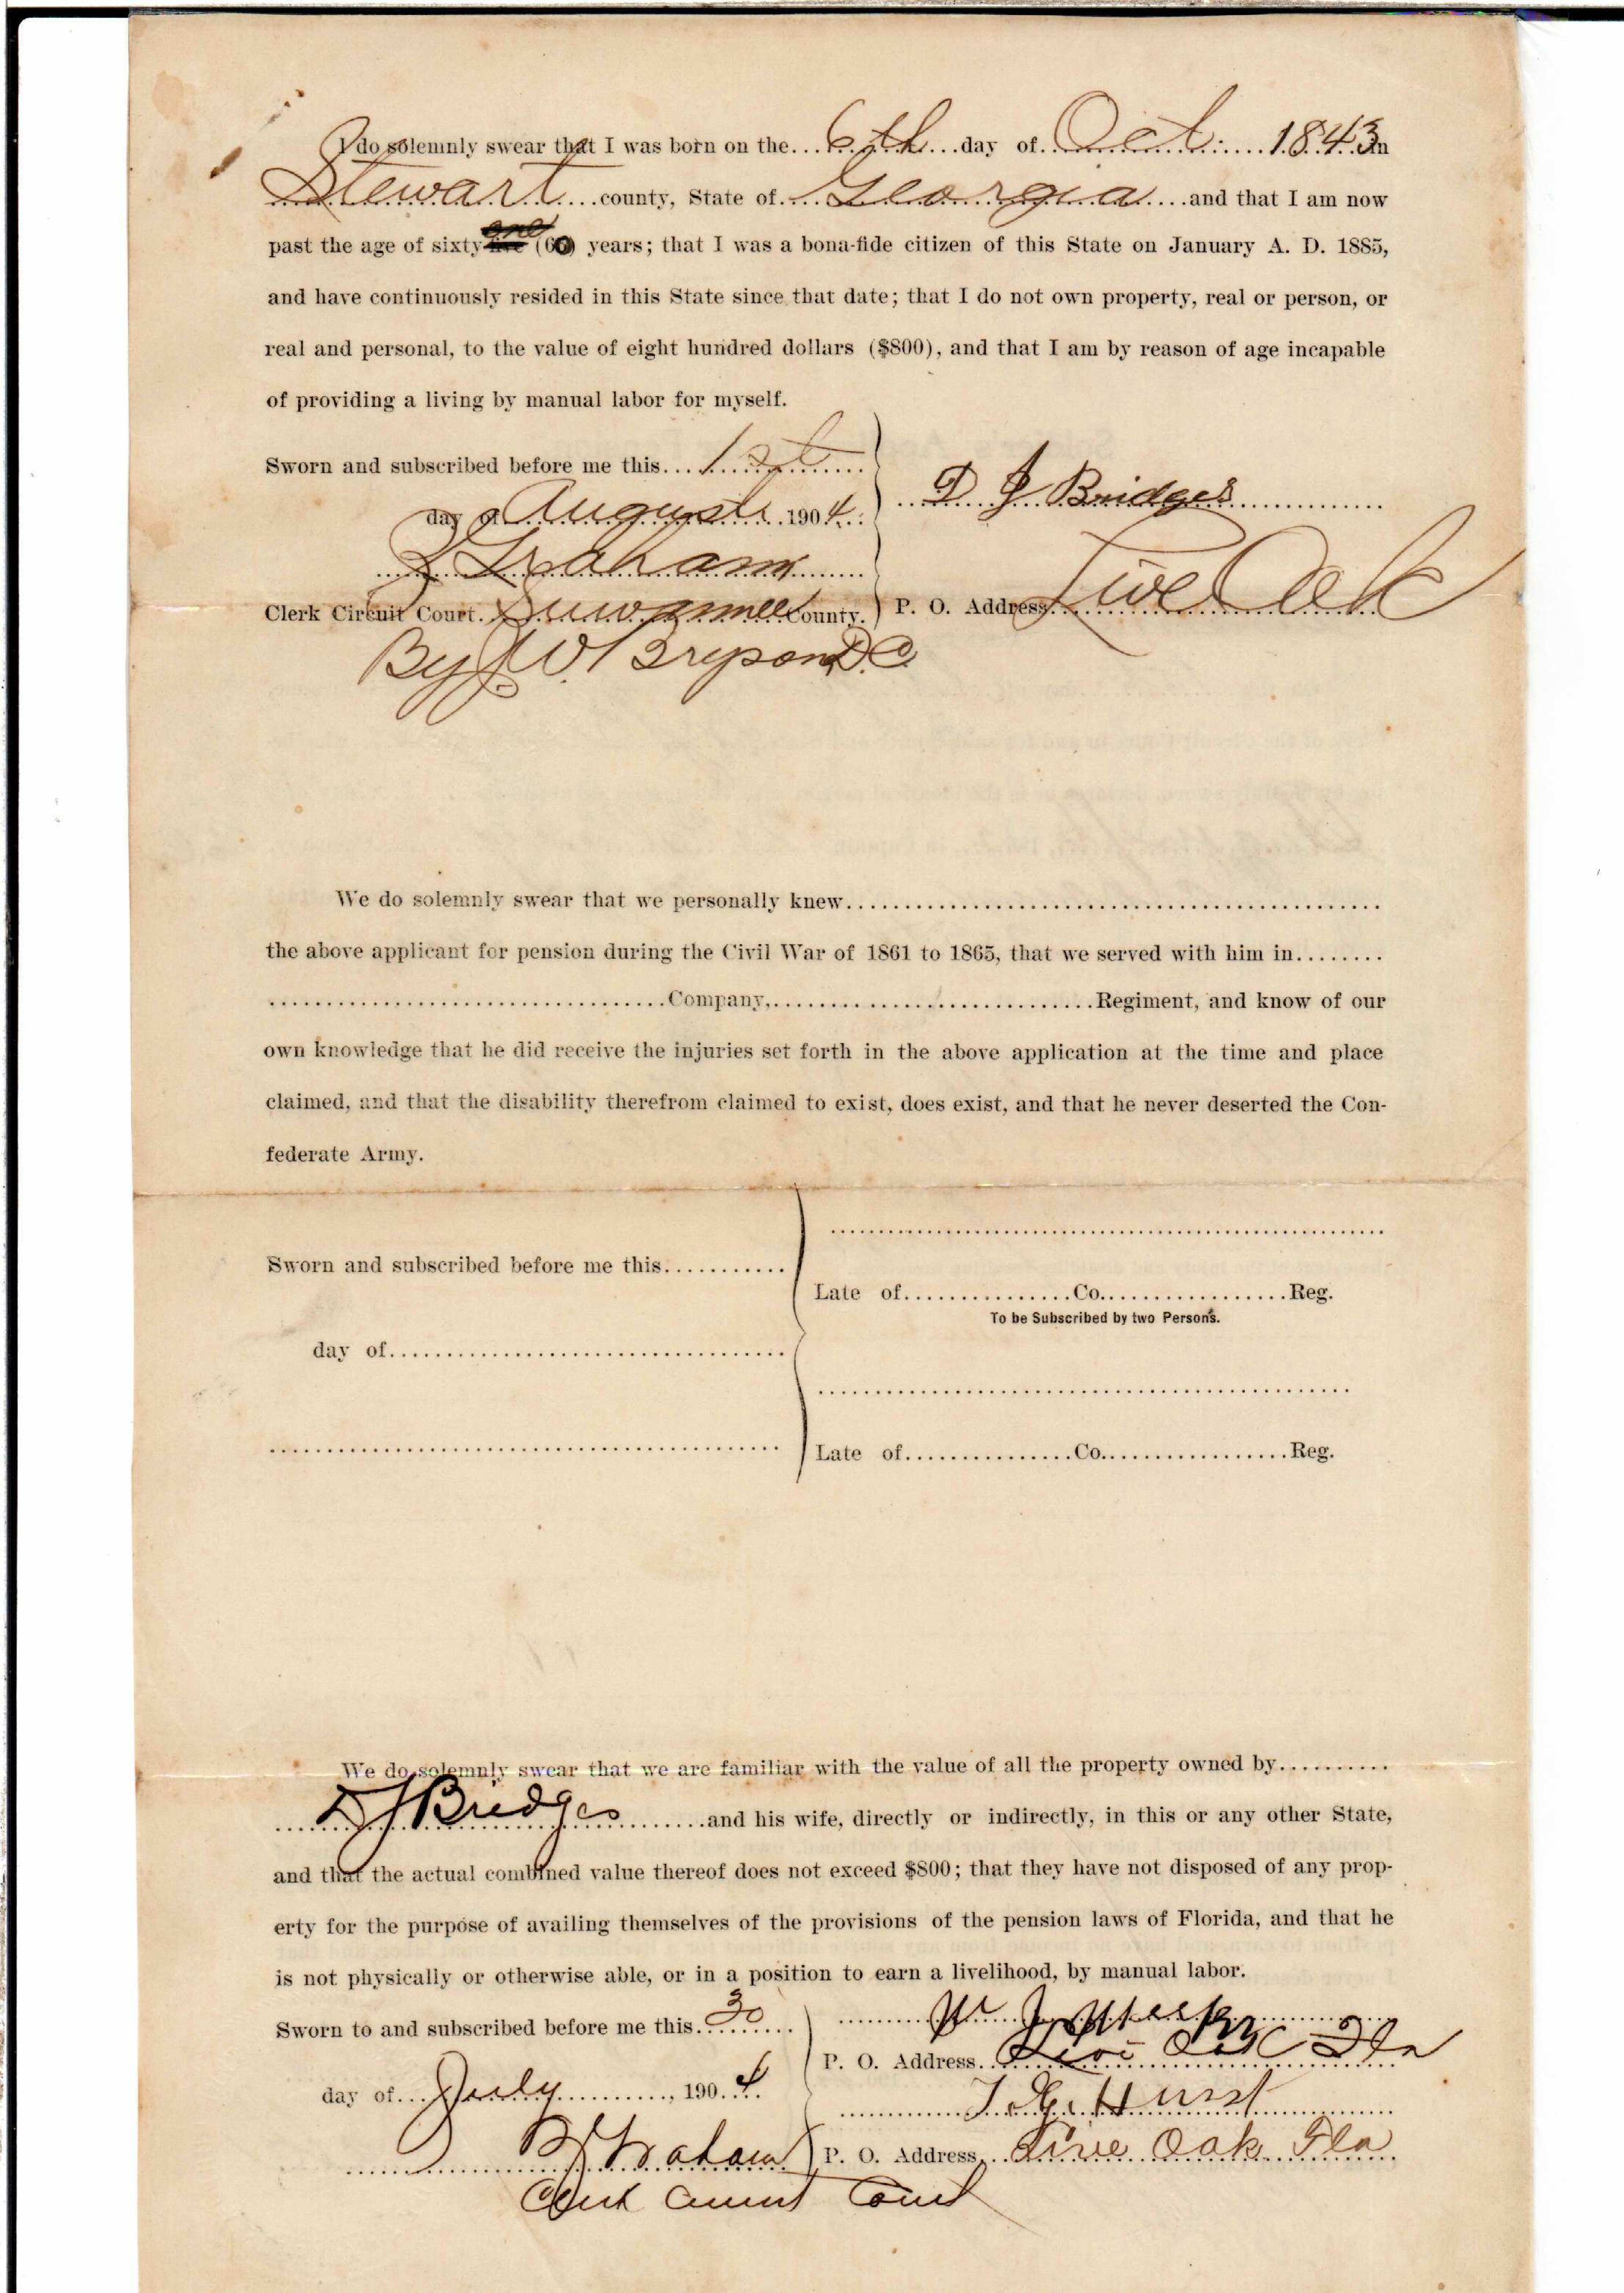 I do solemnly swear that I was born on the...6th...day of..Oct.....1843 in
Stewart....county, State of....Georgia....and that I am now
past the age of sixty one (60) years; that I was a bona-fide citizen of this State on January A. D. 1885,
and have continuously resided in this State since that date; that I do not own property, real or person, or
real and personal, to the value of eight hundred dollars ($800), and that I am by reason of age incapable
of providing a living by manual labor for myself.
Sworn and subscribed before me this...1st....
day of August 1904
D J Bridges
Graham
Clerk Circuit Court. Suwannee County.
P. O. Address Live Oak
By J W. Bryson D.C.
We do solemnly swear that we personally knew
the above applicant for pension during the Civil War of 1861 to 1865, that we served with him in........
Company, Regiment, and know of our
own knowledge that he did receive the injuries set forth in the above application at the time and place
claimed, and that the disability therefrom claimed to exist, does exist, and that he never deserted the Con-
federate Army.
Sworn and subscribed before me this...........
Late of................Co..................Reg.
To be Subscribed by two Persons.
day of
Late of................Co..................Reg.
We do solemnly swear that we are familiar with the value of all the property owned by..........
D J Bridges and his wife, directly or indirectly, in this or any other State,
and that the actual combined value thereof does not exceed $800; that they have not disposed of any prop-
erty for the purpose of availing themselves of the provisions of the pension laws of Florida, and that he
is not physically or otherwise able, or in a position to earn a livelihood, by manual labor.
Sworn to and subscribed before me this 30
P. O. Address Live Oak Fla
day of July, 1904
Hurst
Graham
P. O. Address Live Oak Fla
Clerk Circuit Court